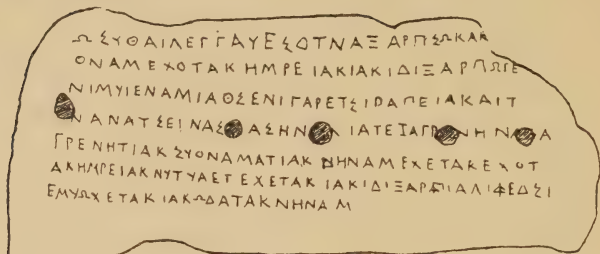 ΩΣΥΘΑΙΛΕΓΓΑΥΕΣΟΤΝΑΞΑΡΠΣΩΚΑΚ
ΟΝΑΜΕΧΟΤΑΚΗΜΡΕΙΑΚΙΑΚΙΔΙΞΑΡΠΩΓΕ
ΝΙΜΥΙΕΝΑΜΙΑΘΣΕΝΙΓΑΡΕΤΣΙΡΑΠΕΙΑΚΑΙΤ
ΝΑΝΑΤΣΕΙΝΑΣ ΑΣΗΝ ΙΑΤΕΙΑΓΡ ΝΗΝ Α
ΓΡΕΝΗΤΙΑΚ ΣΥΟΝΑΜΑΤΙΑΚ ΝΗΝΑΜΕΧΕΤΑΚΕΧΟΤ
ΑΚΗΜΡΕΙΑΚΝΥΤΥΑΕΓΕΧΕΤΑΚ ΙΑΚΙΔΙΞΑΡΠΙΑΛΙΦΕΔΣΙ
ΕΜΥΩΧΕΤΑΚΙΑΚΩΔΑΤΑΚΝΗΝΑΜ